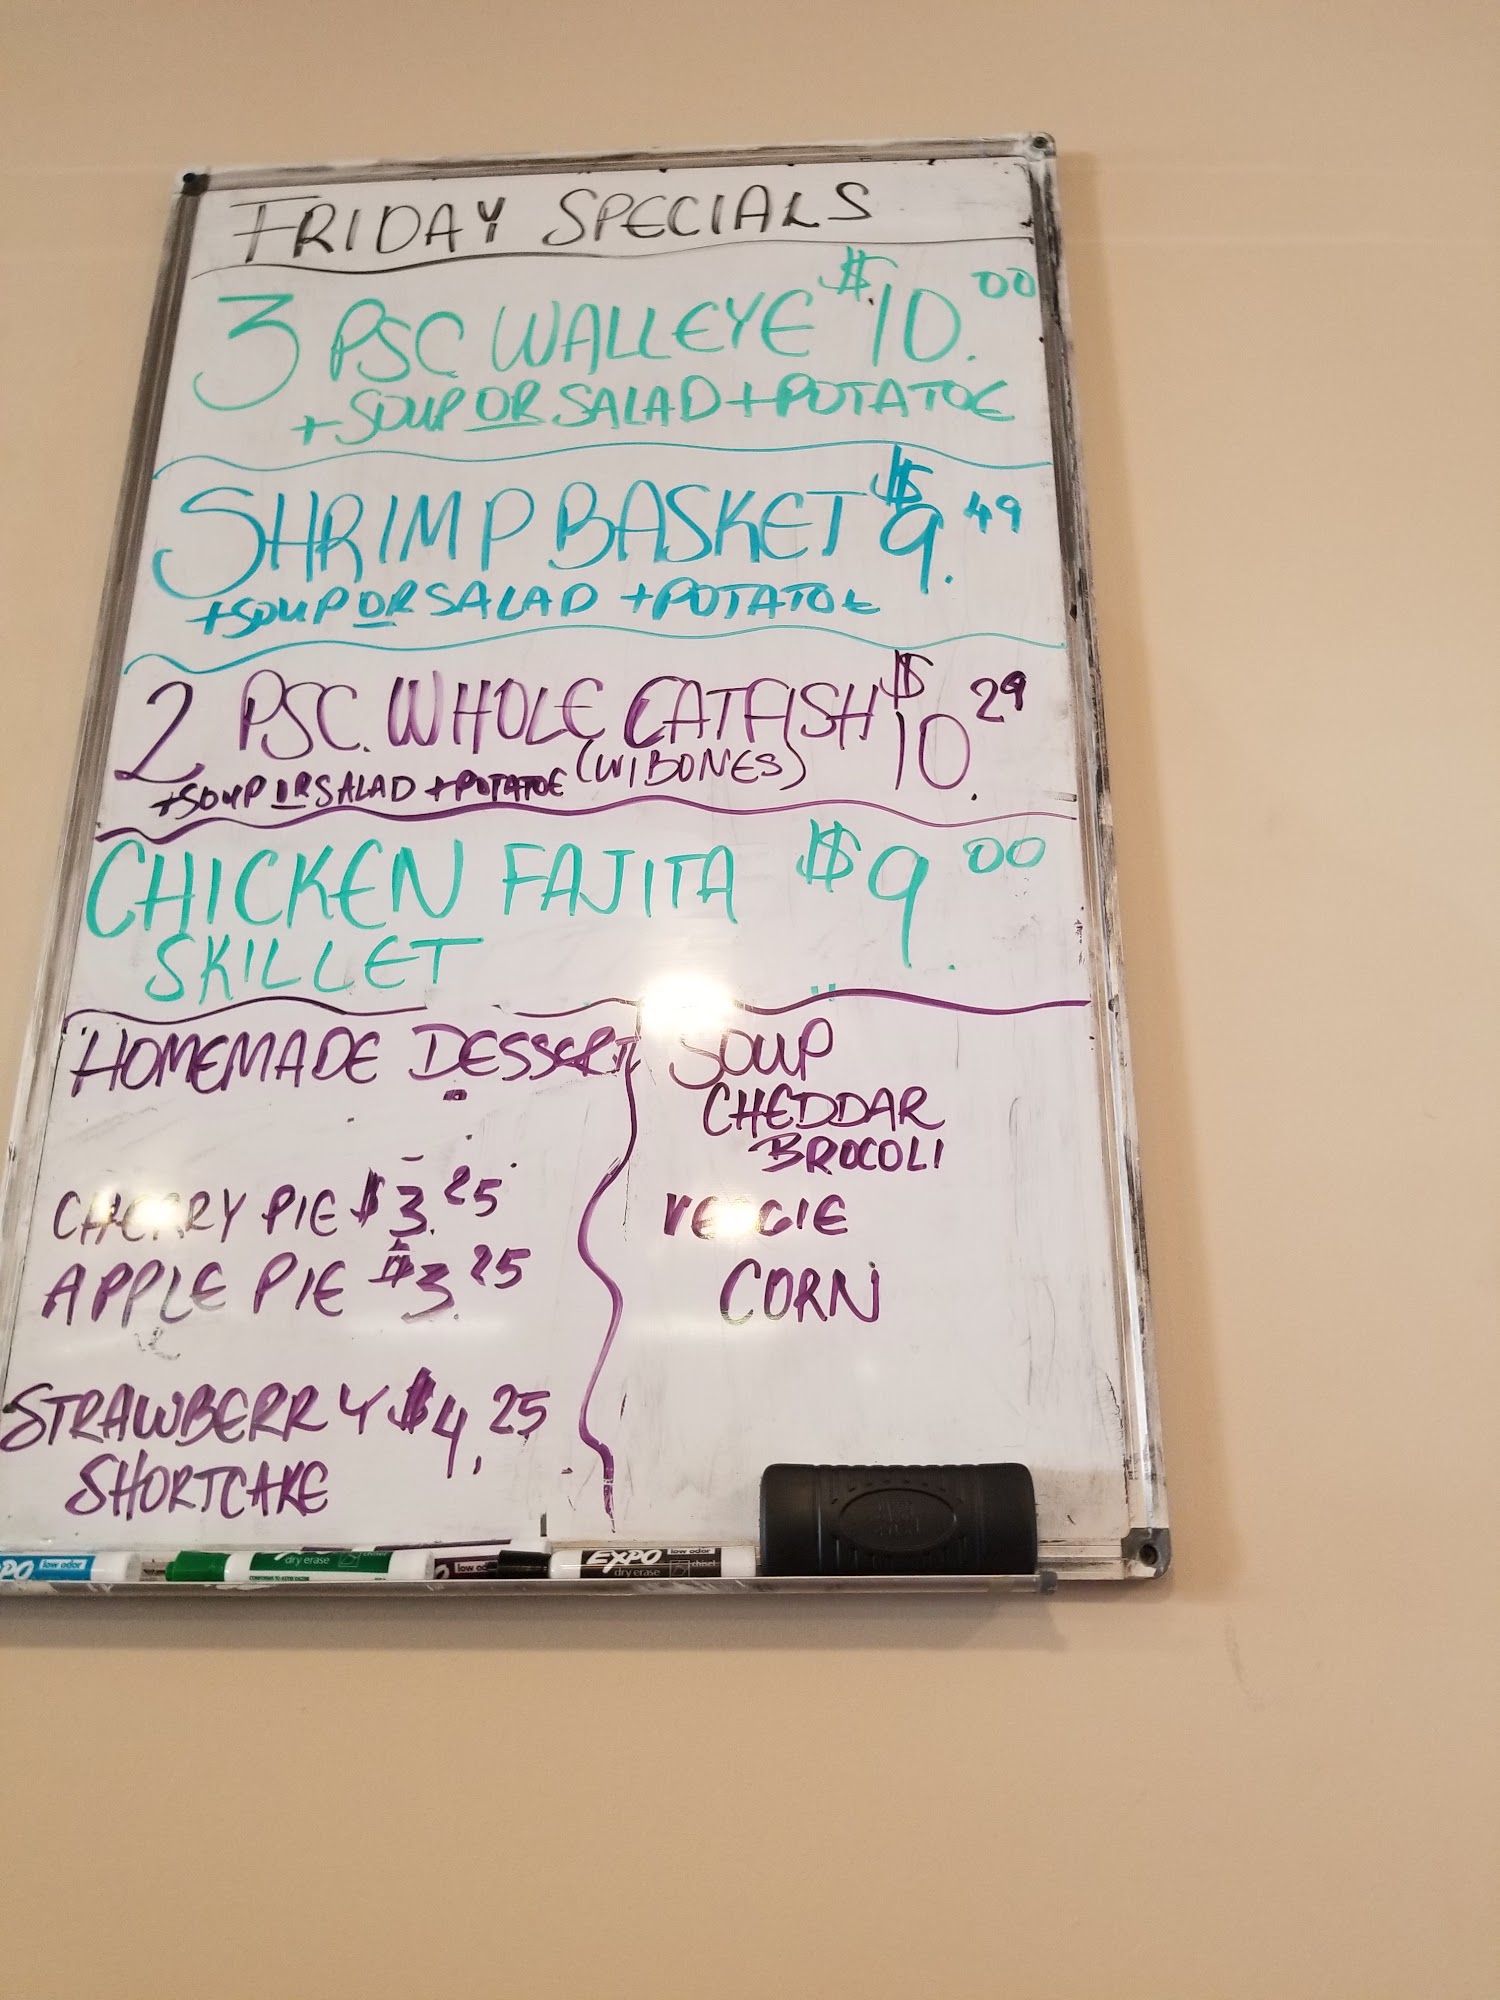 FRIDAY SPECIALS
3 PSC WALLEYE $10.00
+SOUP OR SALAD +POTATOE
SHRIMP BASKET $9.49
+SOUP OR SALAD +POTATOE
2 PSC. WHOLE CATFISH $10.29
(W/BONES)
+SOUP OR SALAD +POTATOE
CHICKEN FAJITA $9.00
SKILLET
HOMEMADE DESSERT
CHERRY PIE $3.25
APPLE PIE $3.25
STRAWBERRY $4.25
SHORTCAKE
SOUP
CHEDDAR
BROCOLI
VEGGIE
CORN
EXPO low odor
dry erase
low odor
EXPO low odor
dry erase chisel